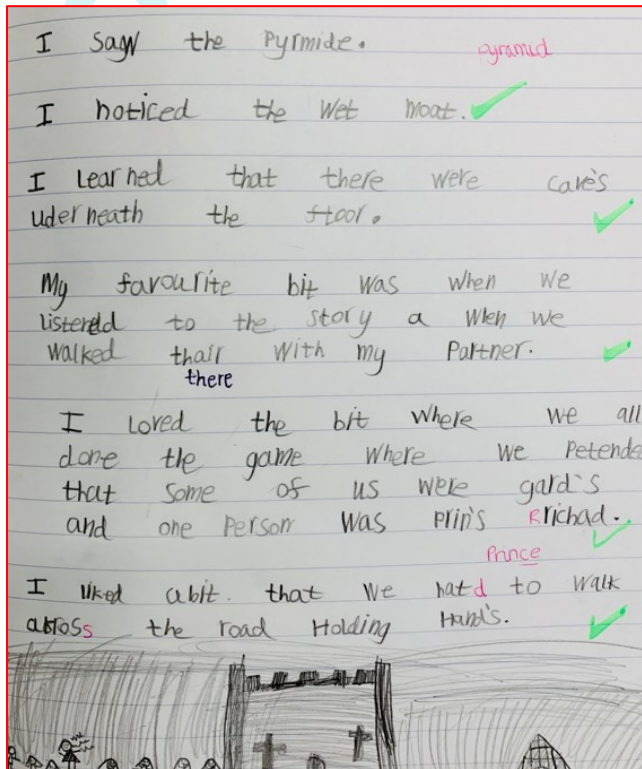 I saw the Pyrmide.
pyramid
I noticed the wet moat.
I Learned that there were cave's
uderneath the floor.
My favourite bit was when we
listened to the story a when we
walked thair with my Partner.
there
I Loved the bit where we all
done the game where we Petende
that some of us were gard's
and one Person was prin's Rrichad.
Prince
I liked abit. that we hatd to walk
across the road Holding Hand's.